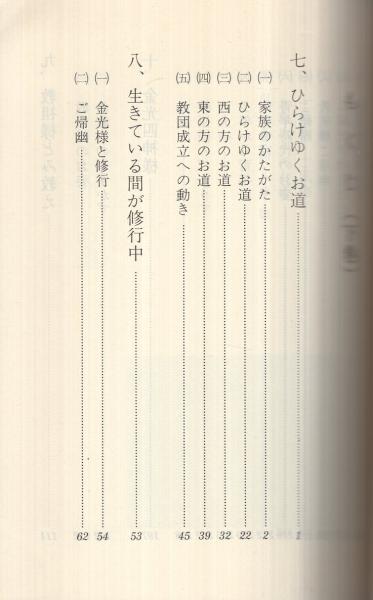 七、ひらけゆくお道……1
㈠ 家族のかたがた……2
㈡ ひらけゆくお道……22
㈢ 西の方のお道……32
㈣ 東の方のお道……39
㈤ 教団成立への動き……45
八、生きている間が修行中……53
㈠ 金光様と修行……54
㈡ ご帰幽……62